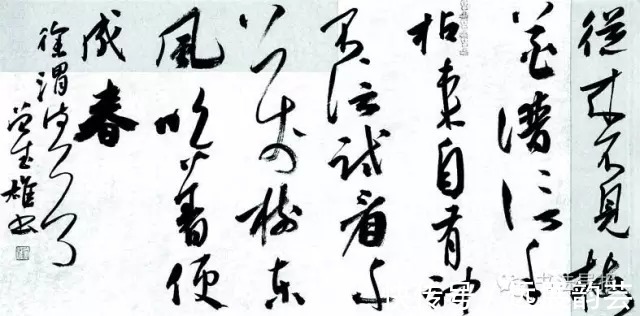 從来不見梅
花譜信手
拈來自有神
不信試看千
萬樹東
風吹著便
成春
徐渭诗